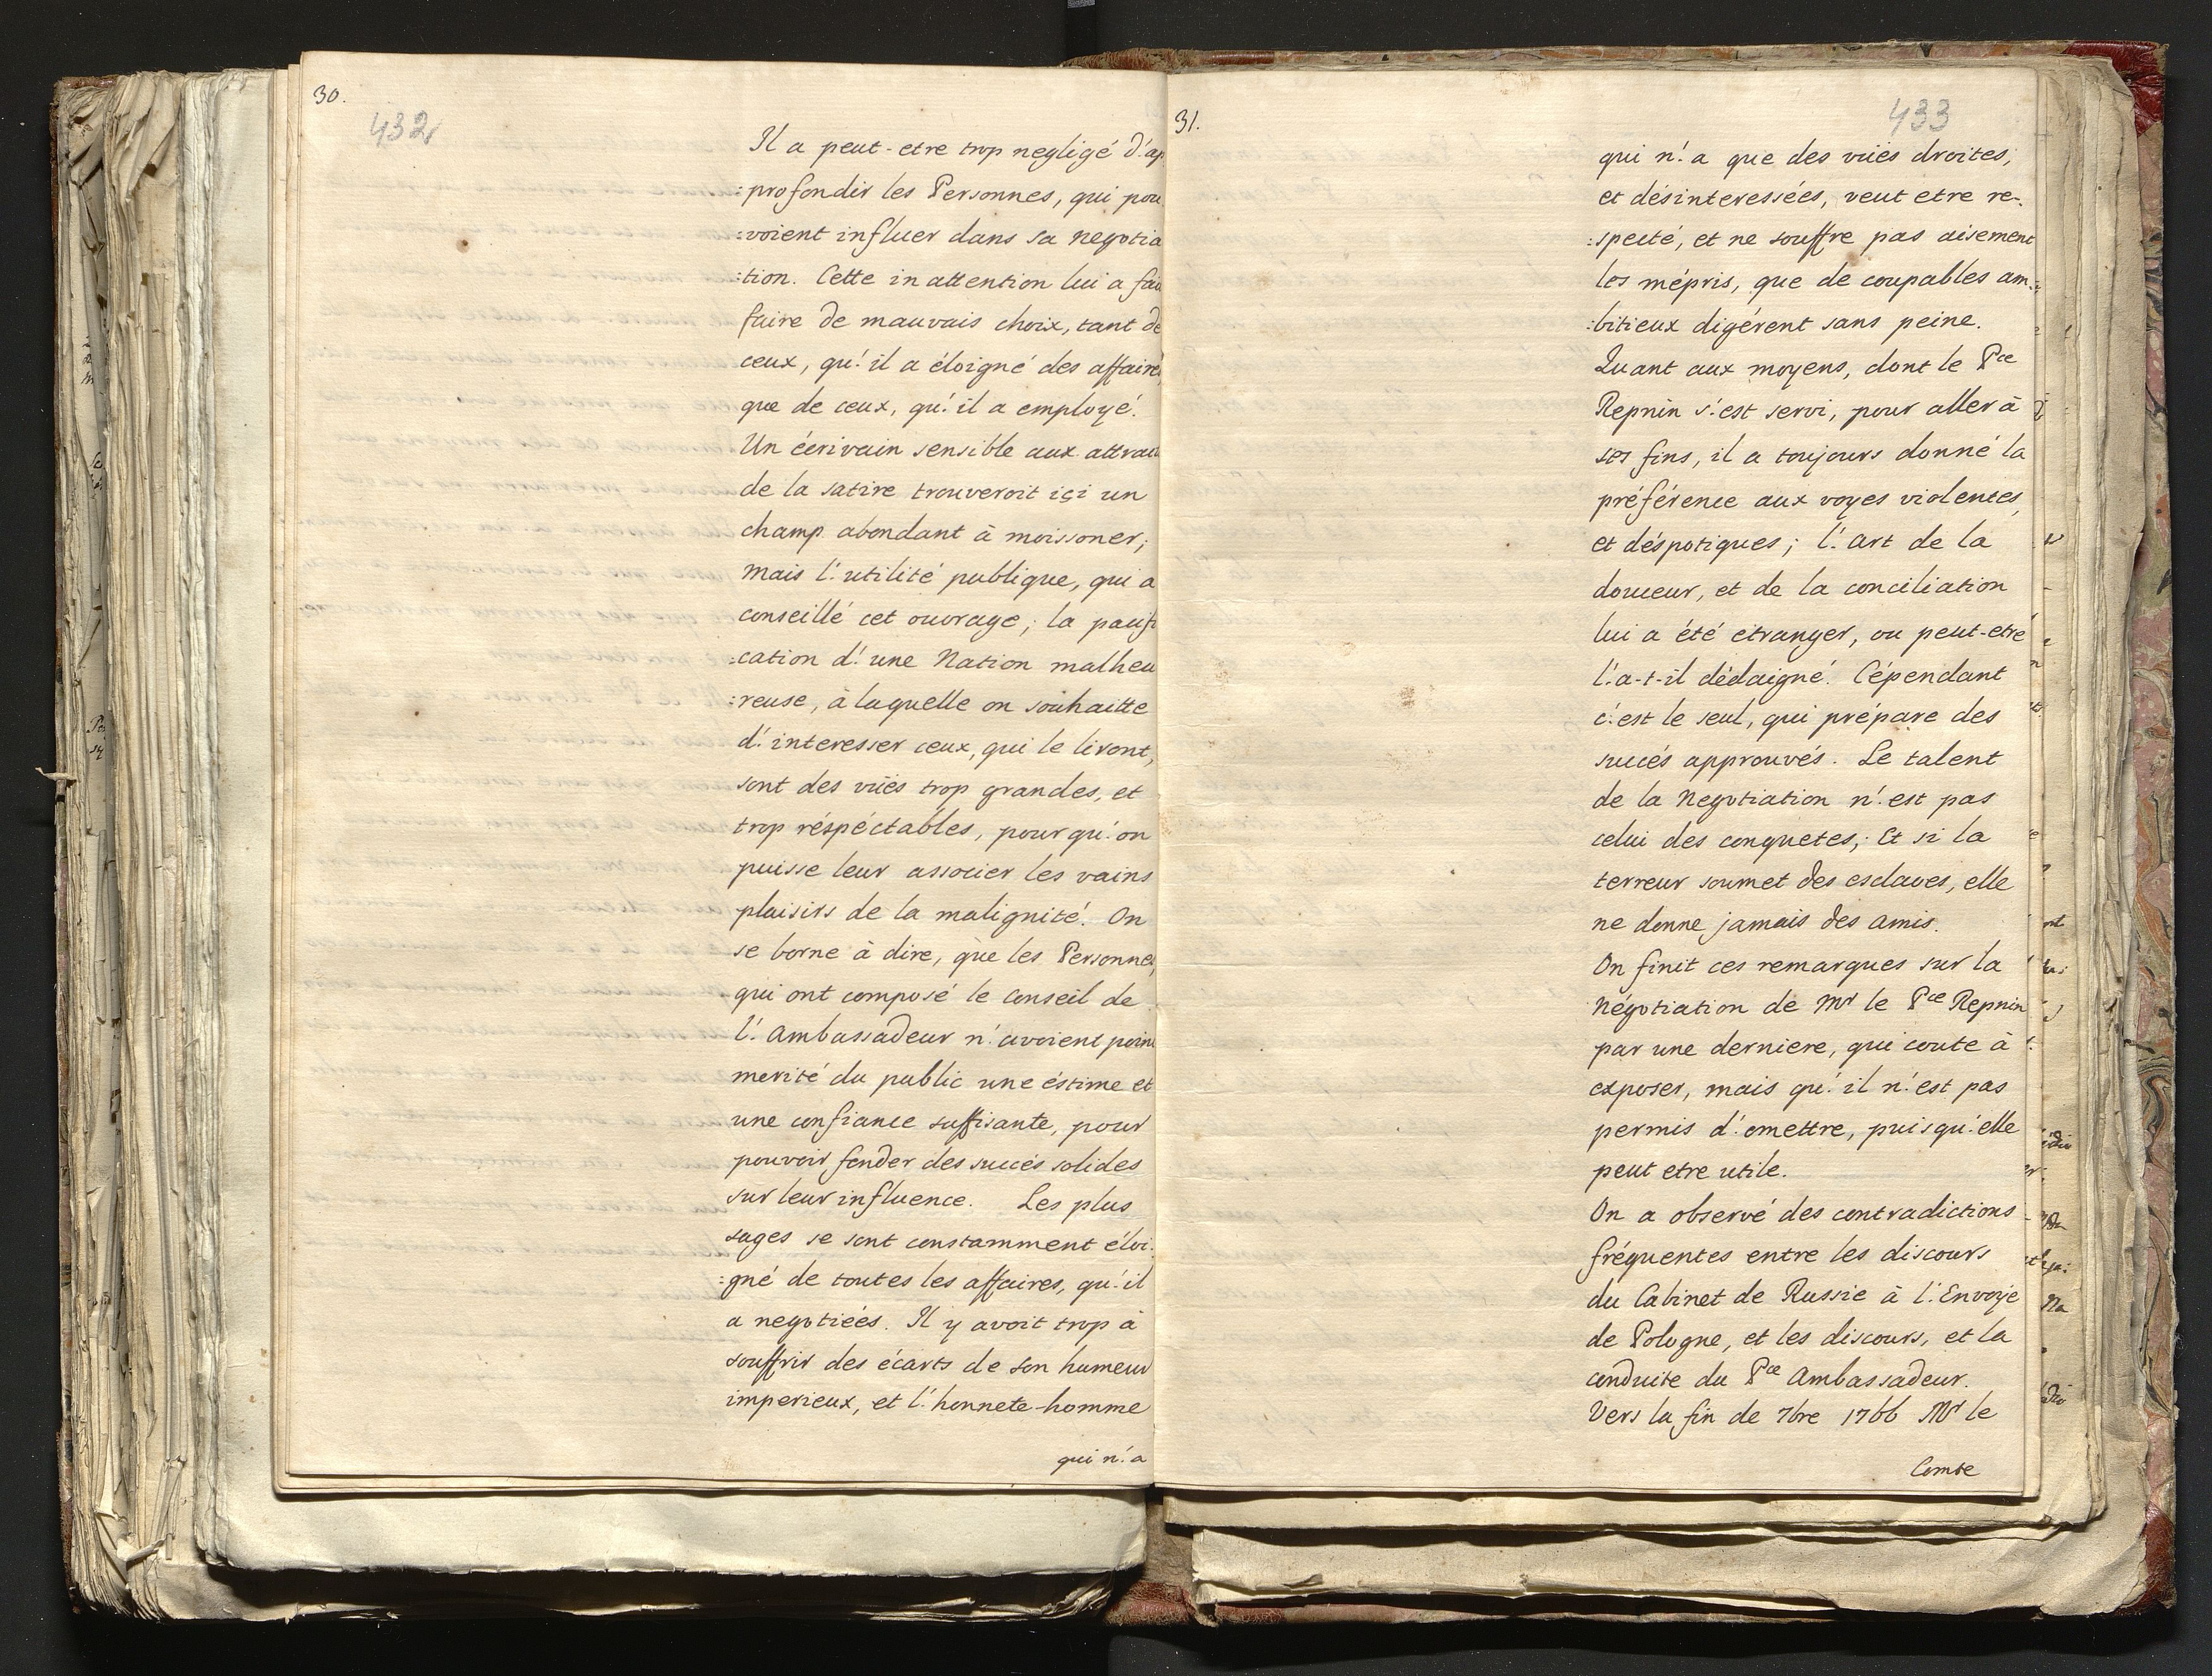 30.
432
Il a peut-etre trop negligé d'ap
:profondir les Personnes, qui pou
:voient influer dans sa negotia
:tion. Cette inattention lui a fai
faire de mauvais choix, tant de
ceux, qu'il a éloigné des affaires
que de ceux, qu'il a employé.
Un écrivain sensible aux attrai
de la satire trouveroit içi un
champ abondant à moissoner;
mais l'utilité publique, qui a
conseillé cet ouvrage; la pacifi
:cation d'une Nation malheu
:reuse, à laquelle on souhaitte
d'interesser ceux, qui le liront,
sont des vües trop grandes, et
trop réspéctables, pour qu'on
puisse leur associer les vains
plaisirs de la malignité. On
se borne à dire, que les Personnes,
qui ont composé le Conseil de
l'Ambassadeur n'avoient poin
merité du public une éstime et
une confiance suffisante, pour
pouvoir fonder des succés solides
sur leur influence. Les plus
sages se sont constamment éloi:
:gné de toutes les affaires, qu'il
a negotiées. Il y avoit trop à
souffrir des écarts de son humeur
imperieux, et l'honnete-homme
qui n'a
31.
433
qui n'a que des vües droites,
et désinteressées, veut etre re-
:specté, et ne souffre pas aisement
les mépris, que de coupables am:
:bitieux digérent sans peine.
Quant aux moyens, dont le Pce
Repnin s'est servi, pour aller à
ses fins, il a toujours donné la
préférence aux voyes violentes,
et déspotiques; l'art de la
douceur, et de la conciliation
lui a été etranger, ou peut-etre
l'a-t-il dédaigné. Cépendant
c'est le seul, qui prépare des
succés approuvés. Le talent
de la Negotiation n'est pas
celui des conquetes; Et si la
terreur soumet des esclaves, elle
ne donne jamais des amis.
On finit ces remarques sur la
Négotiation de Mr le Pce Repnin
par une derniere, qui coute à
exposer, mais qu'il n'est pas
permis d'omettre, puisqu'elle
peut etre utile.
On a observé des contradictions
fréquentes entre les discours
du Cabinet de Russie à l'Envoyé
de Pologne, et les discours, et la
conduite du Pce Ambassadeur.
Vers la fin de 7bre 1766 Mr le
Comte